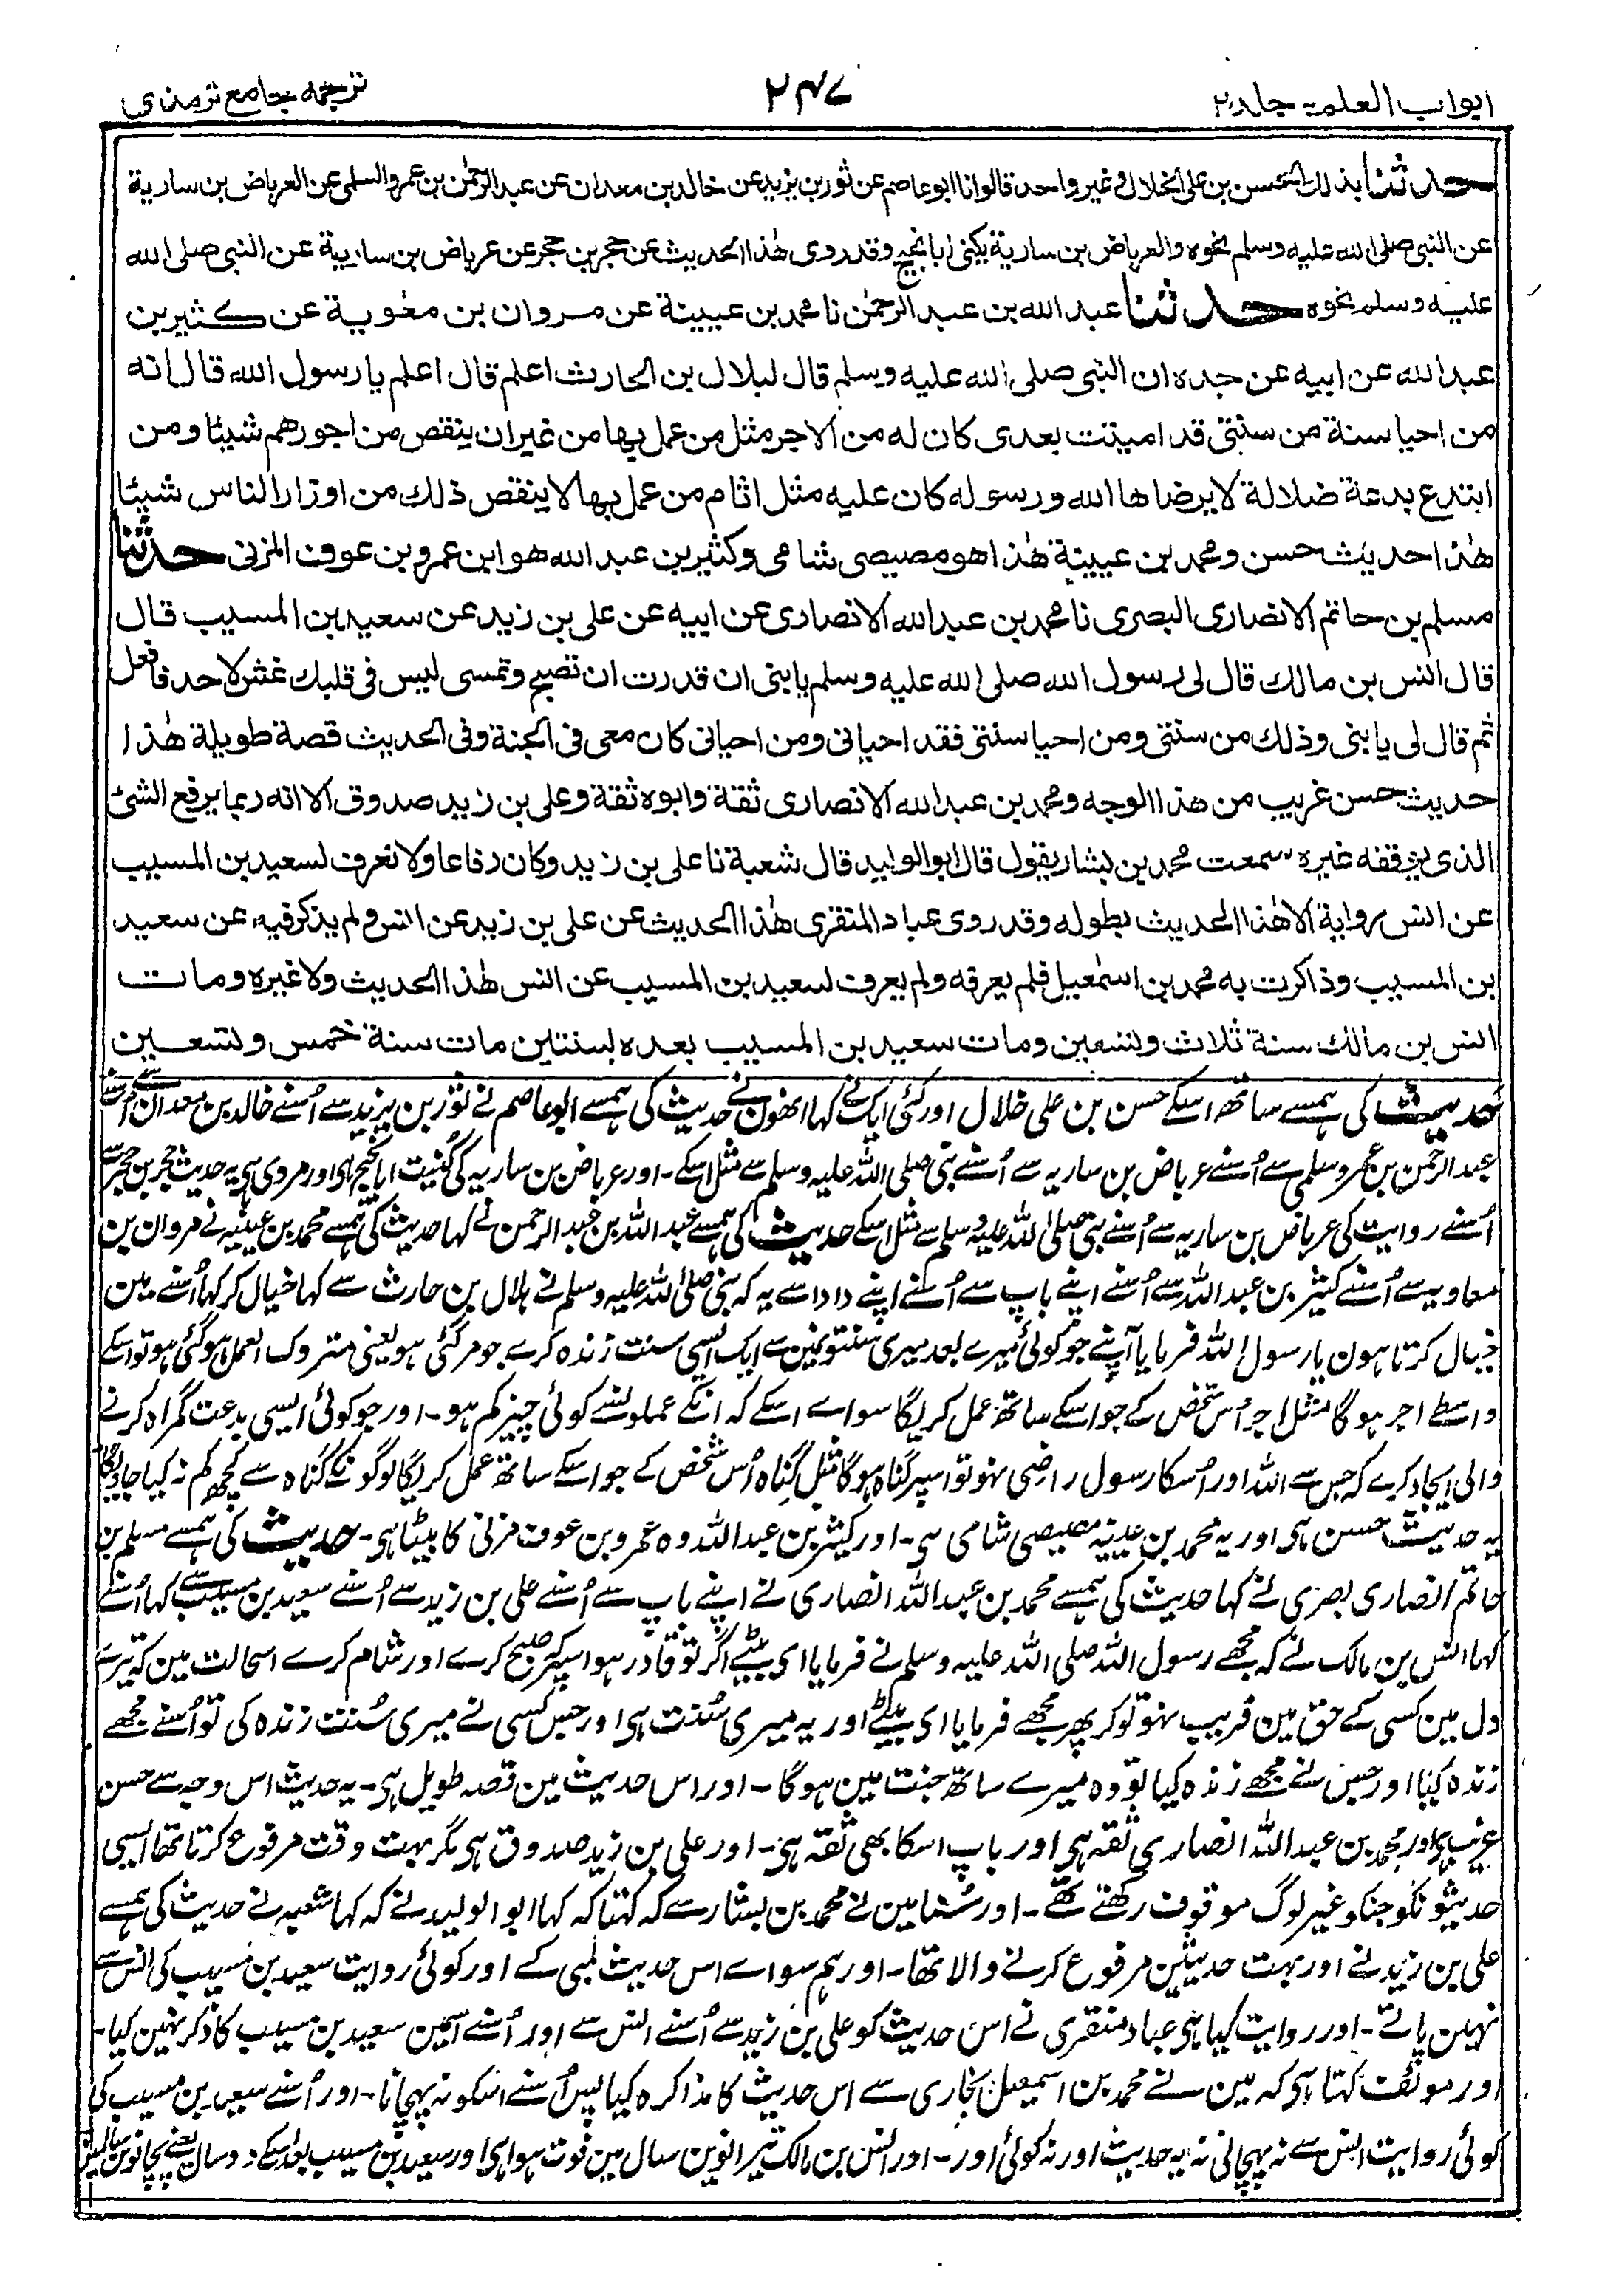 ابواب العلم۔ جلد۲
۲۴۷
ترجمہ جامع ترمذی
حدثنا بذلك الحسن بن على الخلال وغير واحد قالوانا ابو عاصم عن ثور بن يزيد عن خالد بن معدان عن عبد الرحمٰن بن عمرو السلمى عن العرباض بن سارية
عن النبى صلى الله عليه وسلم نحوه والعرباض بن سارية يكنى ابا نجيح وقد روى هٰذا الحديث عن حجر بن حجر عن عرباض بن سارية عن النبى صلى الله
عليه وسلم نحوه حدثنا عبد الله بن عبد الرحمٰن نا محمد بن عيينة عن مروان بن معٰوية عن كثير بن
عبد الله عن ابيه عن جده ان النبى صلى الله عليه وسلم قال لبلال بن الحارث اعلم قال اعلم يا رسول الله قال انه
من احيا سنة من سنتى قد اميتت بعدى كان له من الاجر مثل من عمل بها من غير ان ينقص من اجورهم شيئا ومن
ابتدع بدعة ضلالة لا يرضاها الله ورسوله كان عليه مثل اثام من عمل بها لا ينقص ذلك من اوزار الناس شيئا
هٰذا حديث حسن ومحمد بن عيينة هٰذا هو مصيصى شامى وكثير بن عبد الله هو ابن عمرو بن عوف المزنى حدثنا
مسلم بن حاتم الانصارى البصرى نا محمد بن عبد الله الانصارى عن ابيه عن على بن زيد عن سعيد بن المسيب قال
قال انس بن مالك قال لى رسول الله صلى الله عليه وسلم يا بنى ان قدرت ان تصبح وتمسى ليس فى قلبك غش لاحد فافعل
ثم قال لى يا بنى وذلك من سنتى ومن احيا سنتى فقد احيانى ومن احيانى كان معى فى الجنة وفى الحديث قصة طويلة هٰذا
حديث حسن غريب من هذا الوجه ومحمد بن عبد الله الانصارى ثقة وابوه ثقة وعلى بن زيد صدوق الا انه ربما يرفع الشئ
الذى يوقفه غيره سمعت محمد بن بشار يقول قال ابو الوليد قال شعبة نا على بن زيد وكان رفاعا ولا نعرف لسعيد بن المسيب
عن انس رواية الا هٰذا الحديث بطوله وقد روى عباد المنقرى هٰذا الحديث عن على بن زيد عن انس ولم يذكر فيه عن سعيد
بن المسيب وذاكرت به محمد بن اسمٰعيل فلم يعرفه ولم يعرف لسعيد بن المسيب عن انس هٰذا الحديث ولا غيره ومات
انس بن مالك سنة ثلاث وتسعين ومات سعيد بن المسيب بعده بسنتين مات سنة خمس وتسعين
حدیث کی ہمسے ساتھ اسکے حسن بن علی خلال اور کئی ایک نے کہا انھون نے حدیث کی ہمسے ابو عاصم نے ثور بن یزید سے اُسنے خالد بن معدان سے اُسنے
عبد الرحمن بن عمرو سلمی سے اُسنے عرباض بن ساریہ سے اُسنے نبی صلی اللہ علیہ وسلم سے مثل اسکے۔ اور عرباض بن ساریہ کی کُنیت ابا نجیح ہی اور مروی ہی یہ حدیث حجر بن حجر سے
اُسنے روایت کی عرباض بن ساریہ سے اُسنے نبی صلی اللہ علیہ وسلم سے مثل اسکے حدیث کی ہمسے عبد اللہ بن عبد الرحمن نے کہا حدیث کی ہمسے محمد بن عیینہ نے مروان بن
معاویہ سے اُسنے کثیر بن عبد اللہ سے اُسنے اپنے باپ سے اُسنے اپنے دادا سے یہ کہ نبی صلی اللہ علیہ وسلم نے بلال بن حارث سے کہا خیال کر کہا اُسنے مین
خیال کرتا ہون یا رسول اللہ فرمایا آپنے جو کوئی میرے بعد میری سنتونمین سے ایک ایسی سنت زندہ کرے جو مرگئی ہو یعنی متروک العمل ہوگئی ہو تو اسکے
واسطے اجر ہوگا مثل اجر اُس شخص کے جو اسکے ساتھ عمل کریگا سواے اسکے کہ انکے عملونسے کوئی چیز کم ہو۔ اور جو کوئی ایسی بدعت گمراہ کرنے
والی ایجاد کرے کہ جس سے اللہ اور اُسکا رسول راضی نہو تو اسپر گناہ ہوگا مثل گناہ اُس شخص کے جو اسکے ساتھ عمل کریگا لوگونکے گناہ سے کچھ کم نہ کیا جاویگا
یہ حدیث حسن ہی اور یہ محمد بن عیینہ مصیصی شامی ہی۔ اور کثیر بن عبد اللہ وہ عمرو بن عوف مزنی کا بیٹا ہی۔ حدیث کی ہمسے مسلم بن
حاتم انصاری بصری نے کہا حدیث کی ہمسے محمد بن عبد اللہ انصاری نے اپنے باپ سے اُسنے علی بن زید سے اُسنے سعید بن مسیب سے کہا اُسنے
کہا انس بن مالک نے کہ مجھے رسول اللہ صلی اللہ علیہ وسلم نے فرمایا ای بیٹے اگر تو قادر ہو اسپر کہ صبح کرے اور شام کرے اسحالت مین کہ تیرے
دل مین کسی کے حق مین فریب نہو تو کر پھر مجھے فرمایا ای بیٹے اور یہ میری سُنت ہی اور جس کسی نے میری سُنت زندہ کی تو اُسنے مجھے
زندہ کیا اور جس نے مجھے زندہ کیا تو وہ میرے ساتھ جنت مین ہوگا۔ اور اس حدیث مین قصہ طویل ہی۔ یہ حدیث اس وجہ سے حسن
غریب ہی اور محمد بن عبد اللہ انصاری ثقہ ہی اور باپ اسکا بھی ثقہ ہی۔ اور علی بن زید صدوق ہی مگر بہت وقت مرفوع کرتا تھا ایسی
حدیثونکو جنکو غیر لوگ موقوف رکھتے تھے۔ اور سُنا مین نے محمد بن بشار سے کہ کہتا کہ کہا ابو الولید نے کہ کہا شعبہ نے حدیث کی ہمسے
علی بن زید نے اور بہت حدیثین مرفوع کرنے والا تھا۔ اور ہم سواے اس حدیث لمبی کے اور کوئی روایت سعید بن مسیب کی انس سے
نہین پاتے۔ اور روایت کیا ہی عباد منقری نے اس حدیث کو علی بن زید سے اُسنے انس سے اور اُسنے اسمین سعید بن مسیب کا ذکر نہین کیا۔
اور مولف کہتا ہی کہ مین نے محمد بن اسمٰعیل بخاری سے اس حدیث کا مذاکرہ کیا پس اُسنے اسکو نہ پہچانا۔ اور اُسنے سعید بن مسیب کی
کوئی روایت انس سے نہ پہچانی نہ یہ حدیث اور نہ کوئی اور۔ اور انس بن مالک تیرانوین سال مین فوت ہوا ہی اور سعید بن مسیب بعد اسکے دو سال یعنے پچانوین سال مین